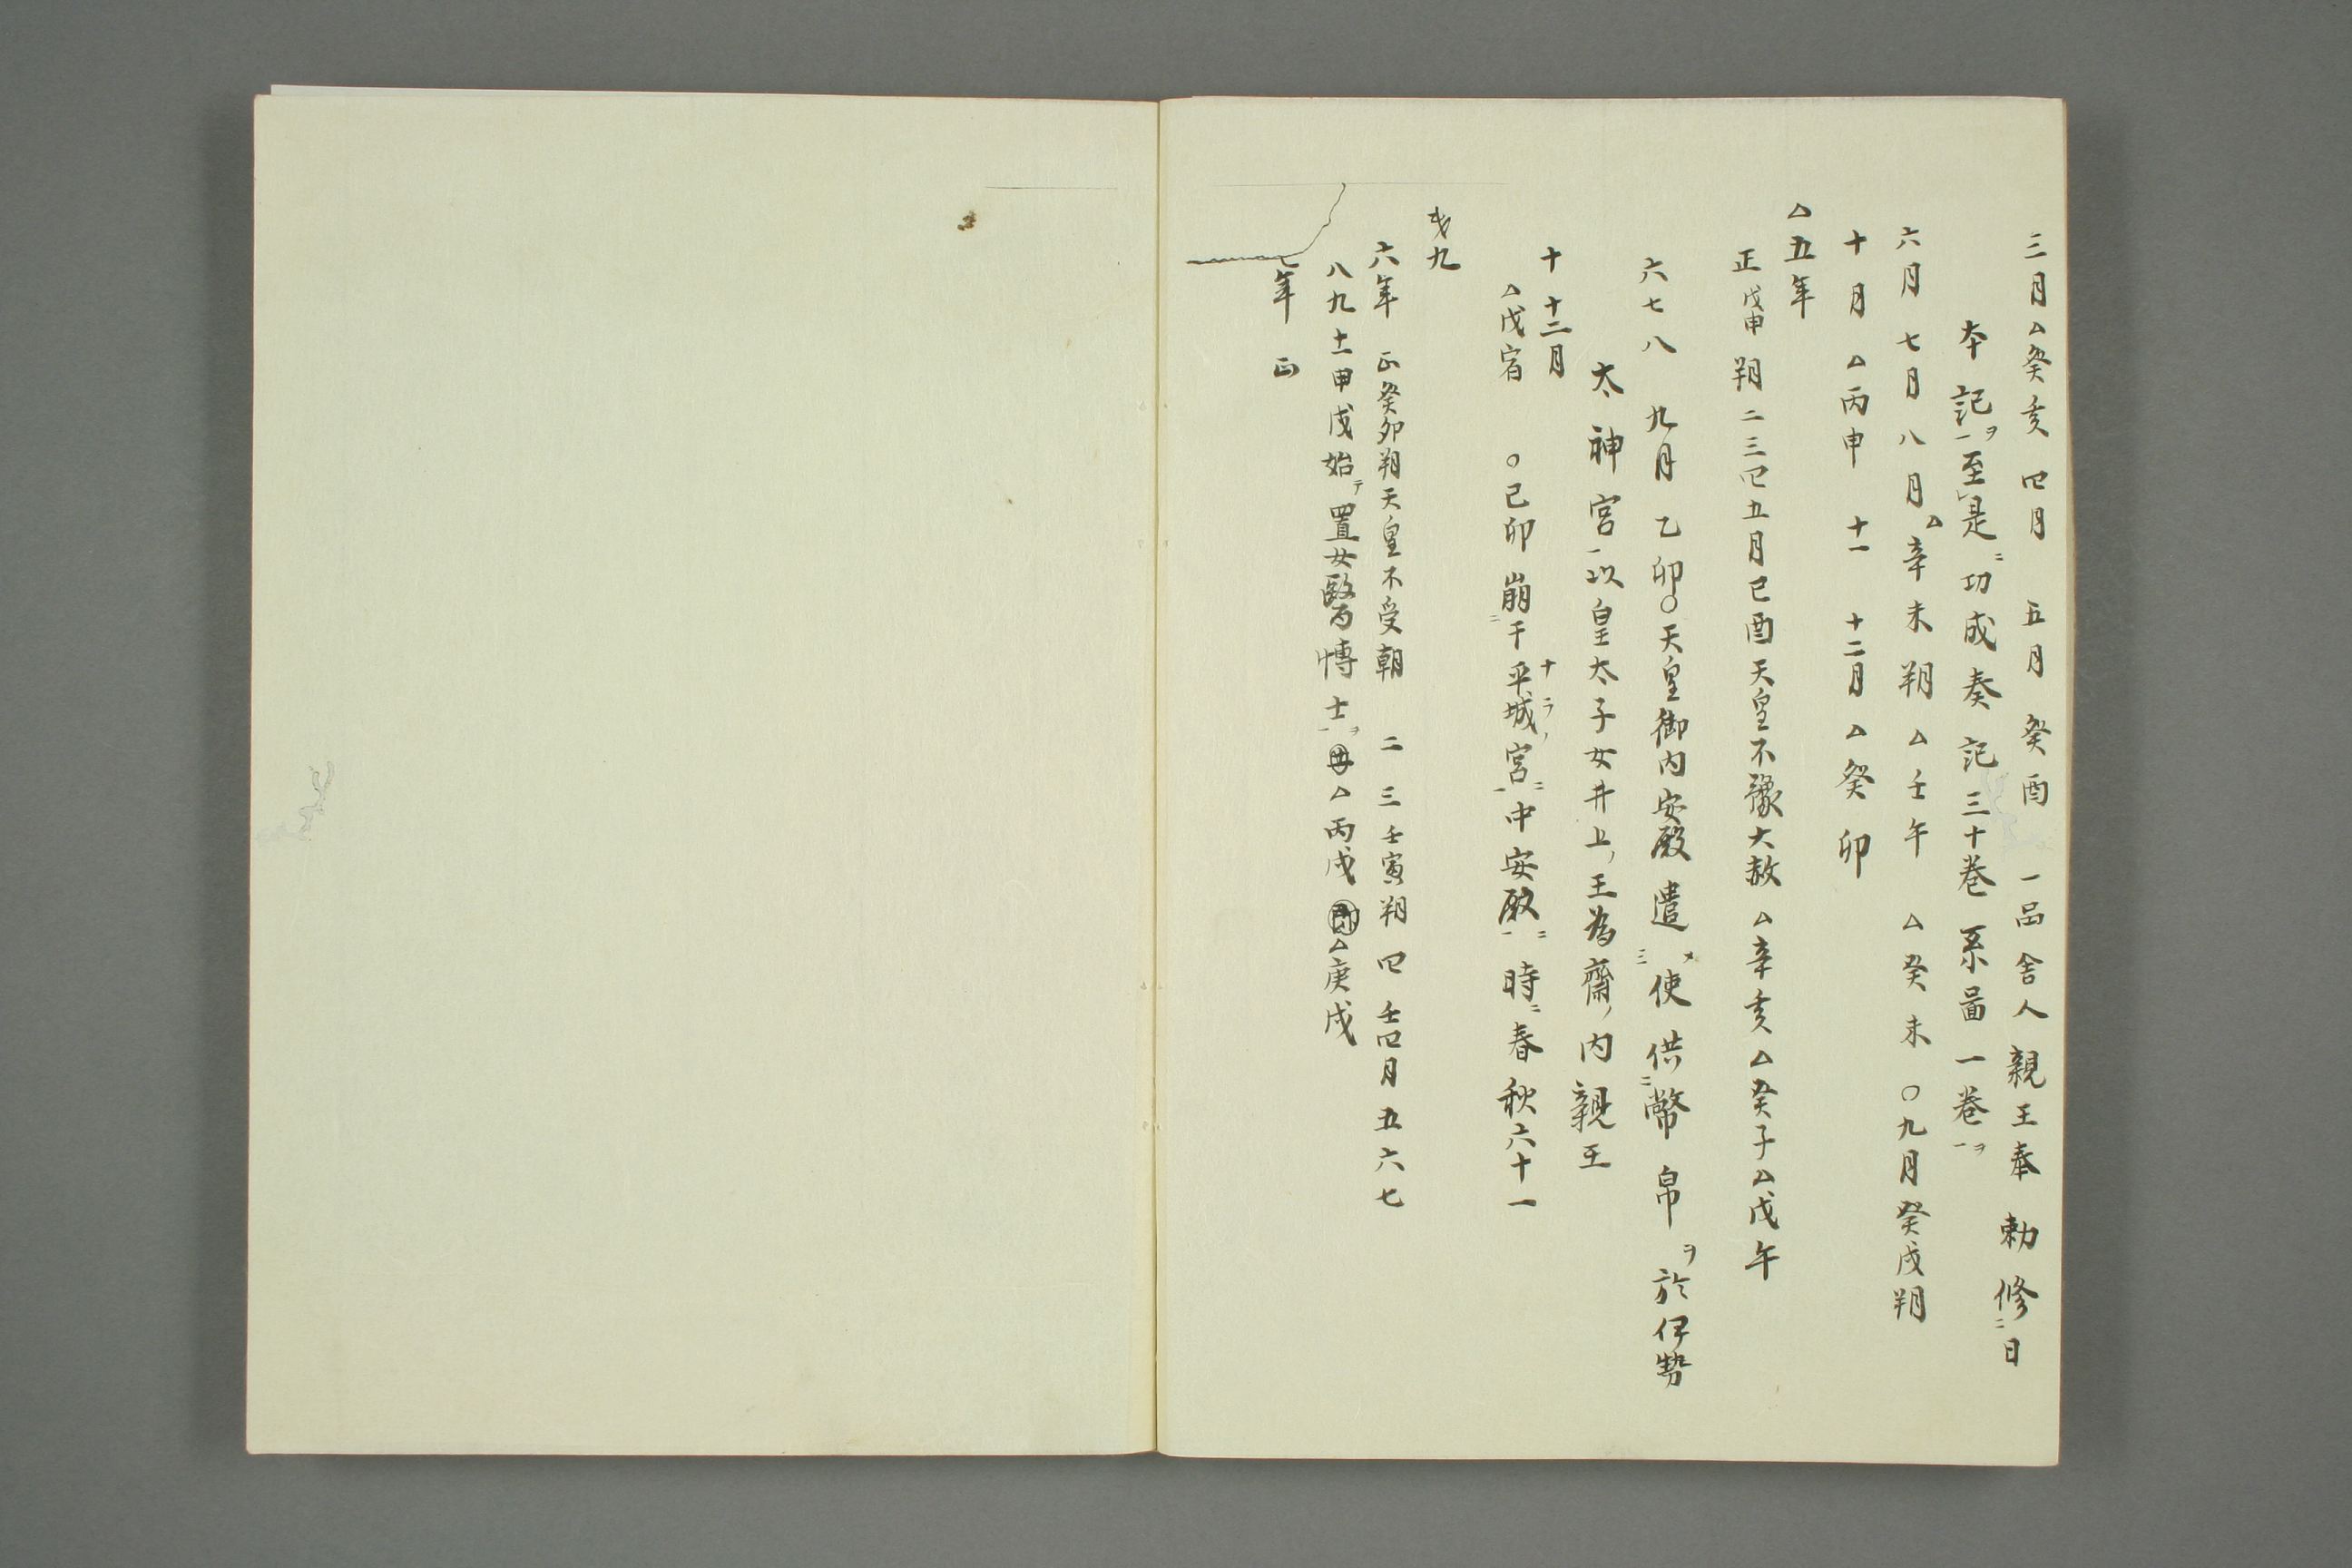 三月△癸亥 四月 五月 癸酉 一品舎人親王奉 勅修ニ日
本記ヲ一至レ是ニ功成奏 記三十巻系啚一巻ヲ一
六月 七月 八月△辛未朔△壬午 △癸未 ○九月癸戌朔
十月 △丙申 十一 十二月△癸卯
△五年
正戊申 朔 二三四五月己酉天皇不豫大赦 △辛亥△癸子△戊午
六七八 九月 乙卯○天皇御内安殿遣メ三使供ニ幣帛ヲ於伊勢
太神宮一以皇太子女井上ノ王為齋ノ内親王
十 十二月
△戊宿 ○己卯 崩ニ于平城ナラノ宮ニ一中安殿ニ一時ニ春秋六十一
九
六年 正癸卯朔天皇不受朝 二 三壬寅朔 四 壬四月 五六七
八九 十一甲戌始テ置女醫博士ヲ一 △丙戌 △庚戌
七年 正